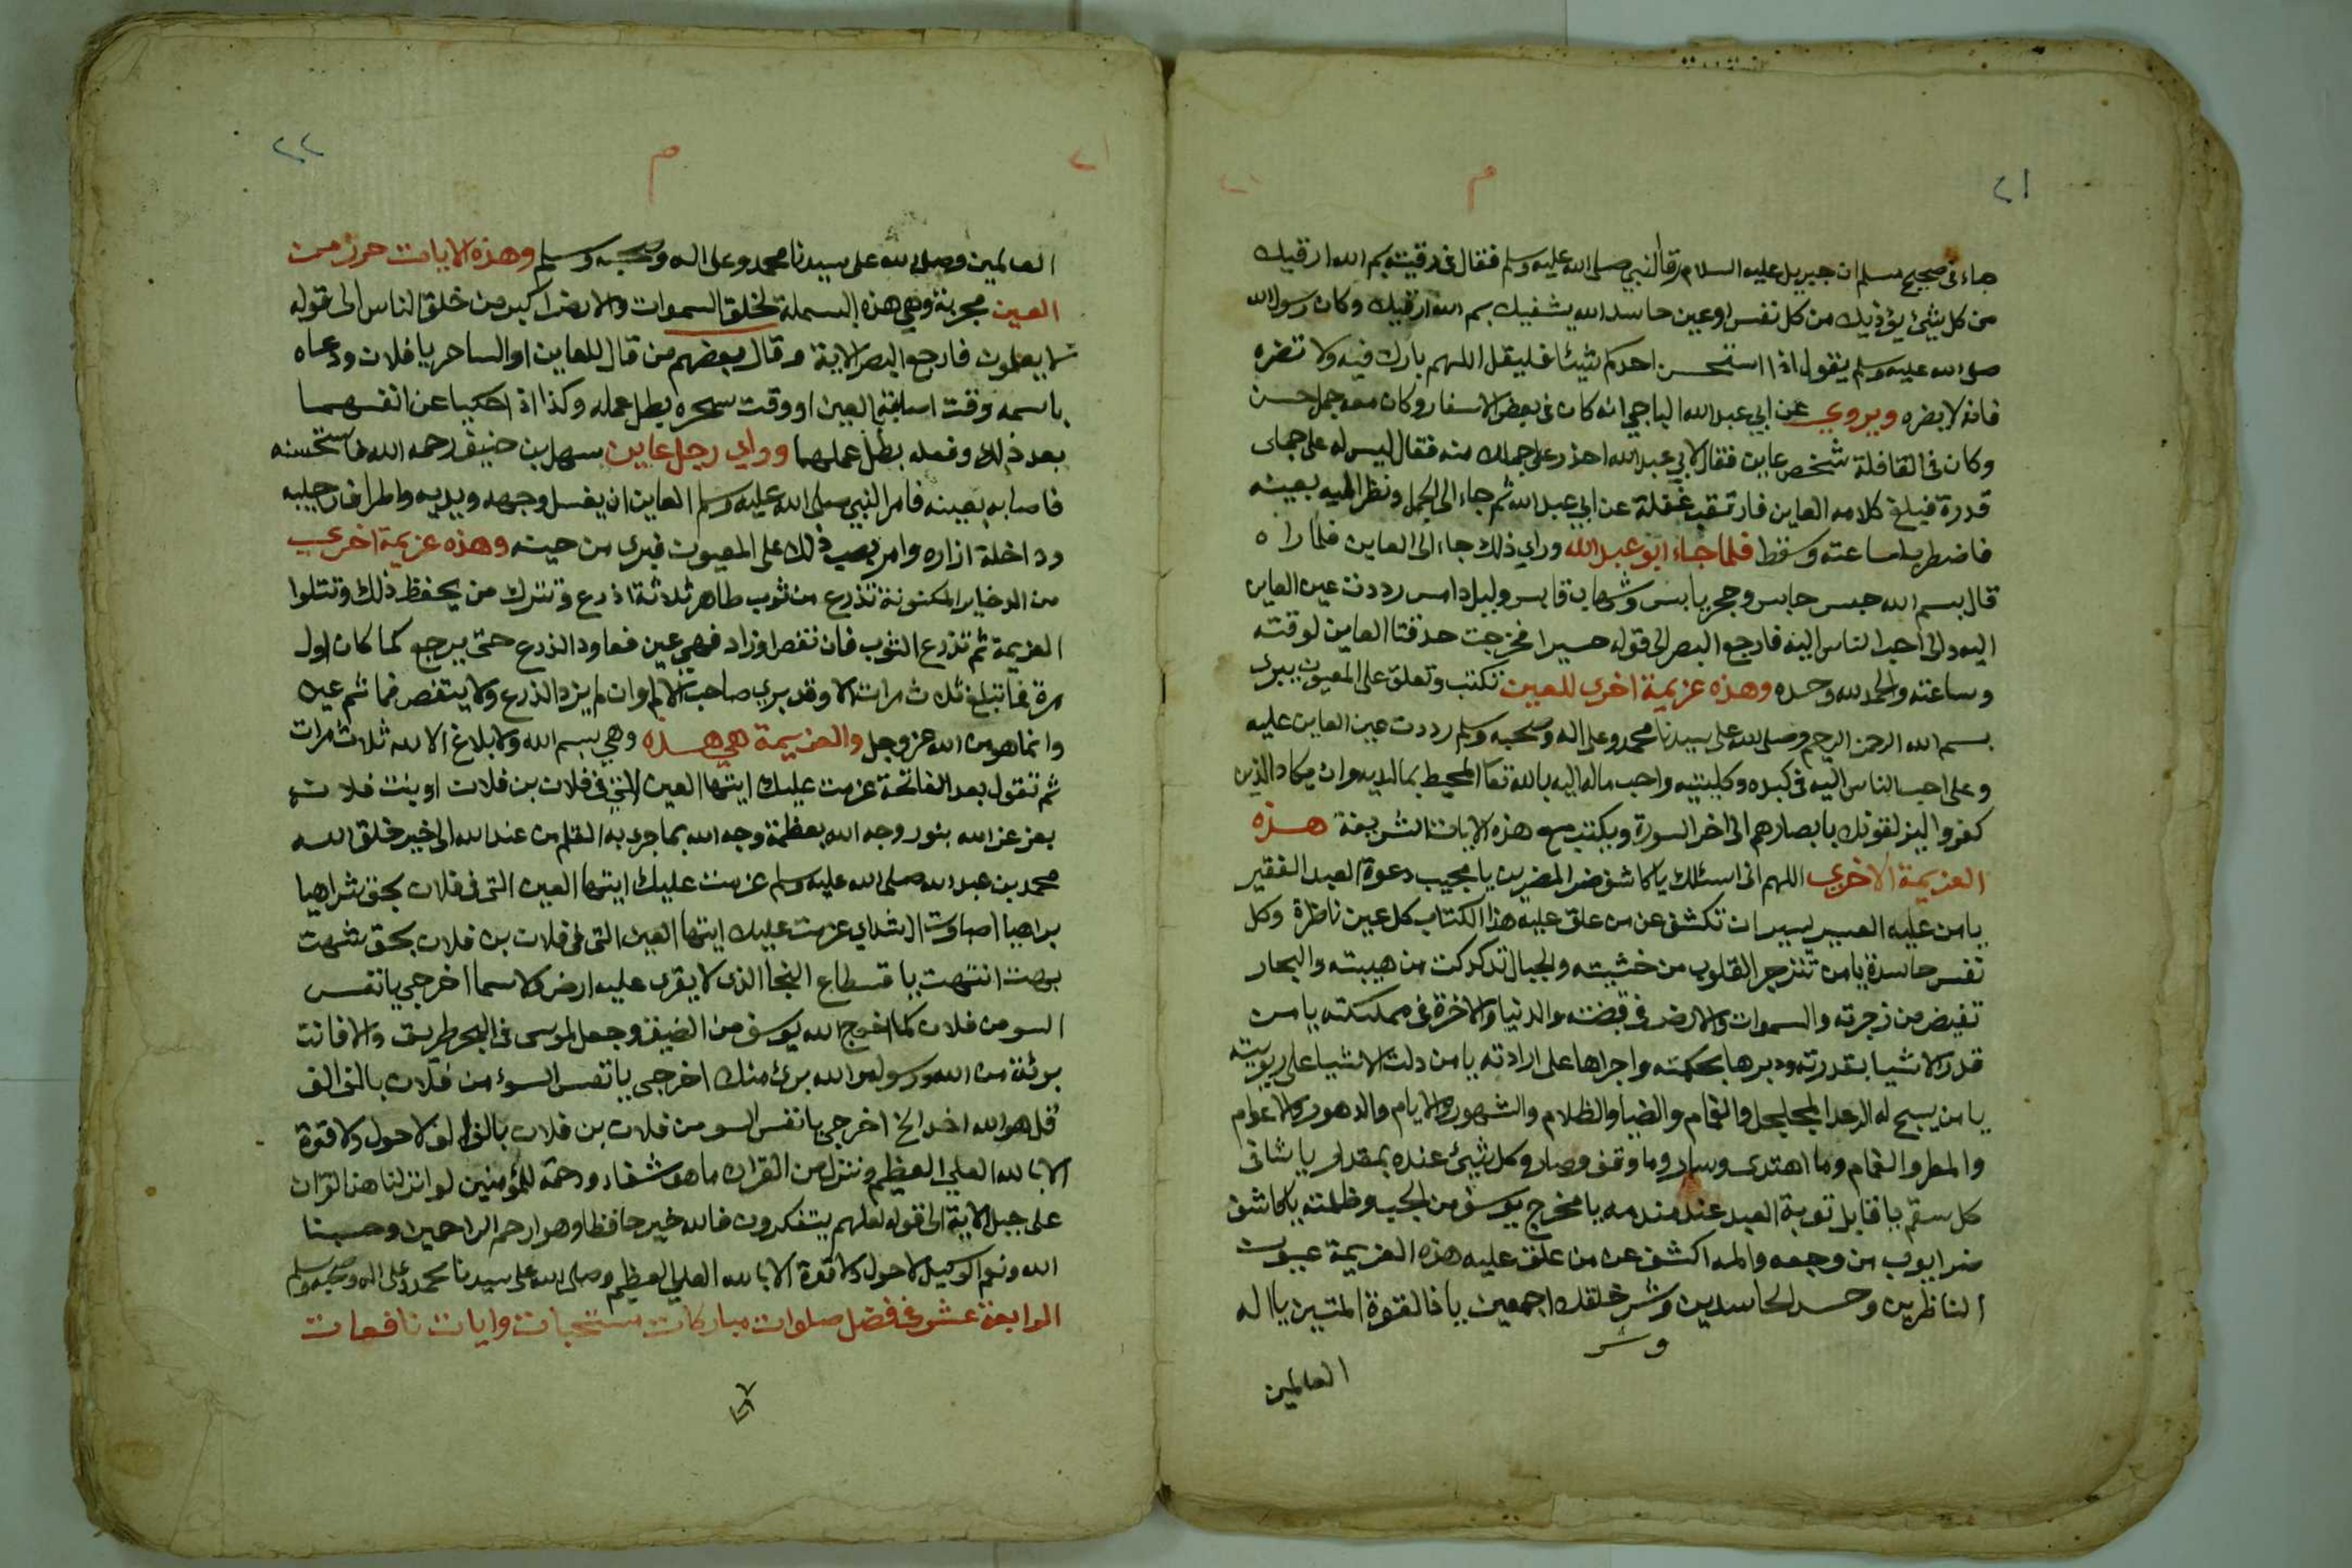 ٢١
م
جاء في صحيح مسلم ان جبريل عليه السلام رقا النبي صلى الله عليه وسلم فقال في رقيته بسم الله ارقيك
من كل شيئ يؤذيك من كل نفس اوعين حاسد الله يشفيك بسم الله ارقيك وكان رسول الله
صلى الله عليه وسلم يقول اذا استحسن احدكم شيئا فليقل اللهم بارك فيه ولا تضره
فانه لا يضره ويروي عن ابي عبد الله الباجي انه كان في بعض الاسفار وكان معه جمل حسن
وكان في القافلة شخص عاين فقال لابي عبد الله احذر على جملك منه فقال ليس له على جملي
قدرة فبلغ كلامه العاين فارتقب غفلة عن ابي عبد الله ثم جاء الى الجمل ونظر اليه بعينه
فاضطرب لساعته وسقط فلما جاء ابو عبد الله وراي ذلك جاء الى العاين فلما راه
قال بسم الله حبس حابس وحجر يابس وشهاب قابس وليل دامس رددت عين العاين
اليه والى احب الناس اليه فارجع البصر الى قوله حسيرا فخرجت حدقتا العاين لوقته
وساعته والحمد لله وحده وهذه عزيمة اخرى للعين تكتب وتعلق على المعيون يبرى
بسم الله الرحمن الرحيم وصلى الله على سيدنا محمد وعلى اله وصحبه وسلم رددت عين العاين عليه
وعلى احب الناس اليه في كبده وكليتيه واحب ماله اليه بالله تعا المحيط بما لديه وان يكاد الذين
كفروا ليزلقونك بابصارهم الى اخر السورة ويكتب مع هذه الايات الشريفة هذه
العزيمة الاخرى اللهم اني اسئلك يا كاشف ضر المضرين يا مجيب دعوة العبد الفقير
يا من عليه العسير يسير ان تكشف عن من علق عليه هذا الكتاب كل عين ناظرة وكل
نفس حاسدة يا من تنزجر القلوب من خشيته والجبال تدكدكت من هيبته والبحار
تفيض من زجرته والسموات والارض في قبضته والدنيا والاخرة في مملكته يا من
قدر الاشيا بقدرته ودبرها بحكمته واجراها على ارادته يا من دلت الاشيا على ربوبيته
يا من يسبح له الرعد المجلجل والغمام والضيا والظلام والشهور والايام والدهور والاعوام
والمطر والغمام وما اهتدى وسار وما وقف وصار وكل شيئ عنده بمقدار يا شافي
كل سقم يا قابل توبة العبد عند مندمه يا مخرج يوسف من الجب وظلمته يا كاشف
ضر ايوب من وجعه والمه اكشف عن من علق عليه هذه العزيمة عيون
الناظرين وحسد الحاسدين وشر خلقك اجمعين يا ذا القوة المتين يا اله
وشر
العالمين
٢٢
م
٢١
العالمين وصلى الله على سيدنا محمد وعلى اله وصحبه وسلم وهذه الايات حرز من
العين مجربة وهي هذه البسملة لخلق السموات والارض اكبر من خلق الناس الى قوله
لا يعلمون فارجع البصر الاية وقال بعضهم من قال للعاين او الساحر يا فلان ودعاه
باسمه وقت اصابة العين او وقت سحره بطل عمله وكذا اذا حكيا عن انفسهما
بعد ذلك وفعله بطل عملهما وراي رجل عاين سهل بن حنيف رحمه الله فاستحسنه
فاصابه بعينه فامر النبي صلى الله عليه وسلم العاين ان يغسل وجهه ويديه واطراف رجليه
وداخلة ازاره وامر بصب ذلك على المعيون فبرى من حينه وهذه عزيمة اخرى
من الدخاير المكنونة تذرع من ثوب طاهر ثلاثة اذرع وتترك من يحفظ ذلك وتتلوا
العزيمة ثم تذرع الثوب فان نقص او زاد فهي عين فعاود الذرع حتى يرجع كما كان اول
مرة فما تبلغ ثلاث مرات الا وقد بري صاحب الالم وان لم يزد الذرع ولا ينقص فما ثم عين
وانما هو من الله عز وجل والعزيمة هي هذه وهي بسم الله ولا بلاغ الا لله ثلاث مرات
ثم تقول بعد الفاتحة عزمت عليك ايتها العين التي في فلان بن فلان او بنت فلان
بعز عز الله بنور وجه الله بعظمة وجه الله بما جرى به القلم من عند الله الى خير خلق الله
محمد بن عبد الله صلى الله عليه وسلم عزمت عليك ايتها العين التي في فلان بحق شراهيا
براهيا اصباوت ال شداي عزمت عليك ايتها العين التي في فلان بن فلان بحق شهت
بهت انتهت يا قسطاع النجا الذي لا يقرى عليه ارض ولا سما اخرجي يا نفس
السو من فلان كما اخرج الله يوسف من الضيق وجعل لموسى في البحر طريق والا فانت
برئة من الله ورسوله والله برئ منك اخرجي يا نفس السوء من فلان بالف الف
قل هو الله احد الخ اخرجي يا نفس السو من فلان بن فلان بالف الف لا حول ولا قوة
الا بالله العلي العظيم وننزل من القران ما هو شفاء ورحمة للمؤمنين لو انزلنا هذا القران
على جبل الاية الى قوله لعلهم يتفكرون فالله خير حافظا وهو ارحم الراحمين وحسبنا
الله ونعم الوكيل لا حول ولا قوة الا بالله العلي العظيم وصلى الله على سيدنا محمد وعلى اله وصحبه وسلم
الرابعة عشر في فضل صلوات مباركات مستحبات وايات نافعات